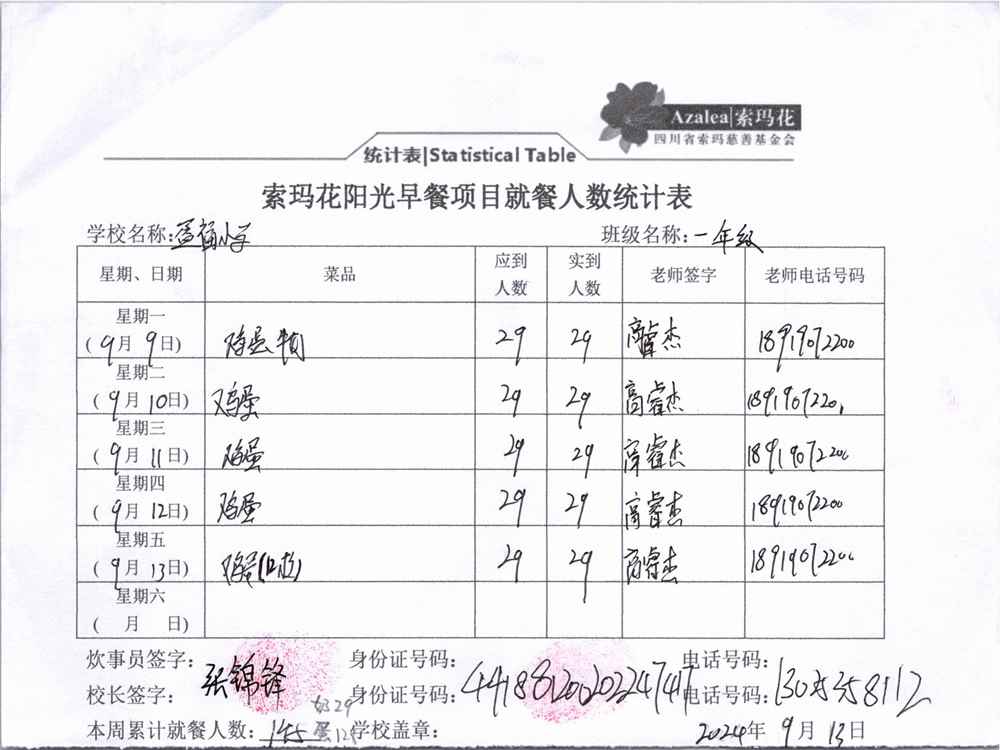 Azalea|索玛花
四川省索玛慈善基金会
统计表|Statistical Table
索玛花阳光早餐项目就餐人数统计表
学校名称: 小学 班级名称: 一年级
星期、日期 菜品 应到人数 实到人数 老师签字 老师电话号码
星期一 (9月9日) 鸡蛋 29 29 高睿杰 18919072200
星期二 (9月10日) 鸡蛋 29 29 高睿杰 1891907220
星期三 (9月11日) 鸡蛋 29 29 高睿杰 18919072200
星期四 (9月12日) 鸡蛋 29 29 高睿杰 18919072200
星期五 (9月13日) 鸡蛋 29 29 高睿杰 18919072200
星期六 ( 月 日)
炊事员签字: 身份证号码: 电话号码:
张锦锋
校长签字: 身份证号码: 电话号码:
本周累计就餐人数: 145 学校盖章: 2024年9月13日